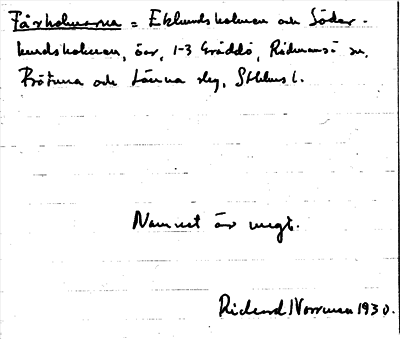 Fårholmarna = Eklundsholmen och Söder-
kundsholmen, öar, 1-3 Gräddö, Rådmansö sn,
Frötuna och Länna slg, Sthlms l.
Namnet är inegt.
Richard Norrman 1930.